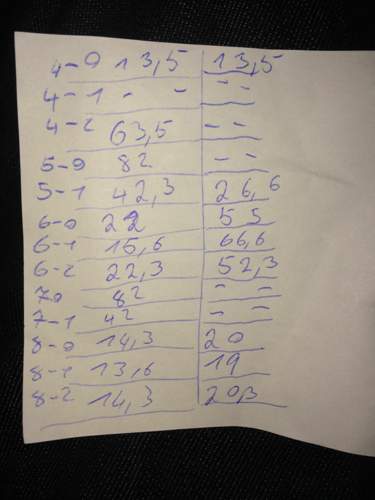 4-0 13,5 13,5
4-1 - - - -
4-2 63,5 - -
5-0 82 - -
5-1 42,3 26,6
6-0 22 55
6-1 15,6 66,6
6-2 22,3 52,3
70 82 - -
7-1 42 - -
8-0 14,3 20
8-1 13,6 19
8-2 14,3 20,3